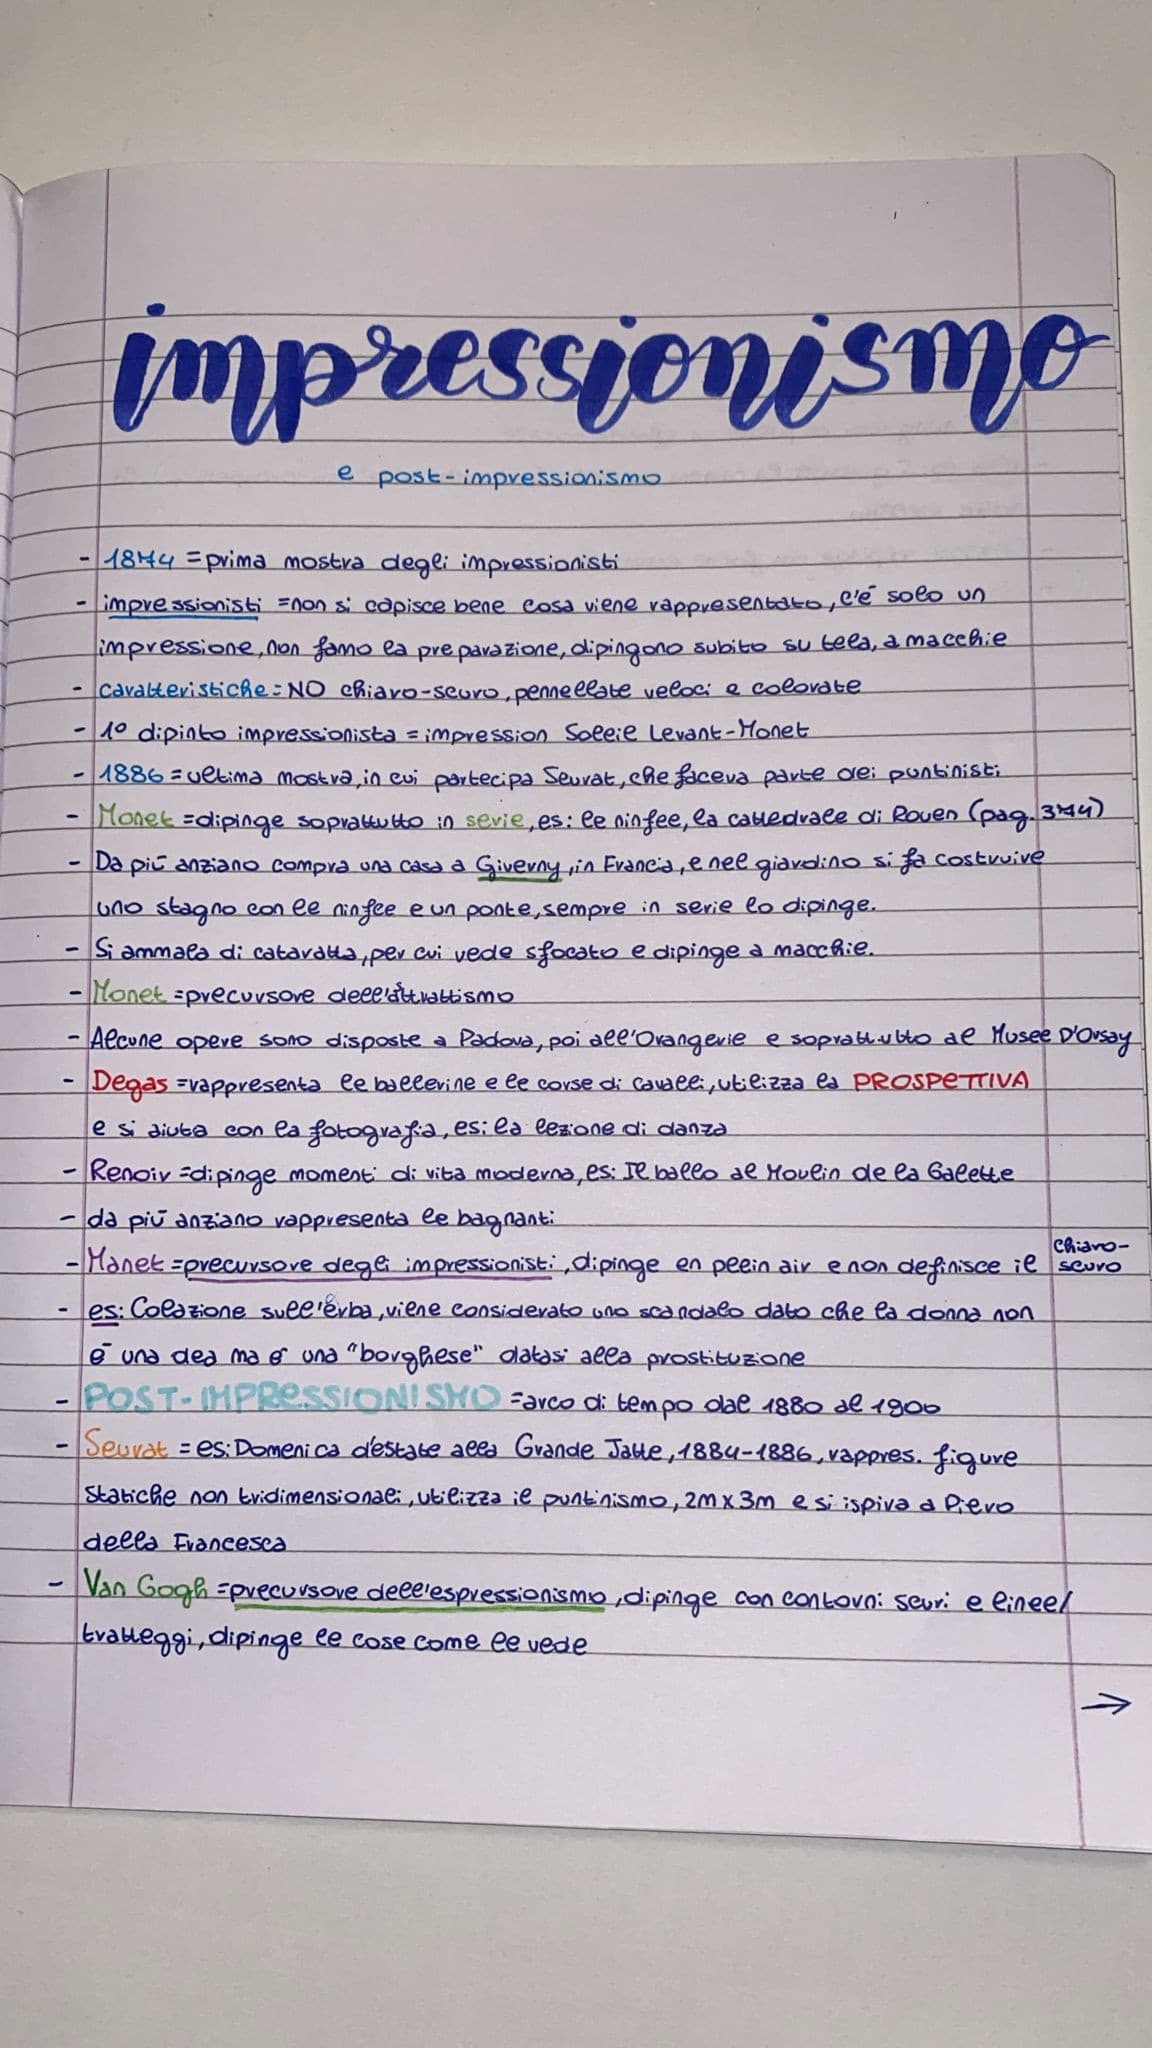 impressionismo
e post-impressionismo
- 1874 = prima mostra degli impressionisti
- impressionisti = non si capisce bene cosa viene rappresentato, c'é solo un
impressione, non fanno la preparazione, dipingono subito su tela, a macchie
- caratteristiche: NO chiaro-scuro, pennellate veloci e colorate
- 1° dipinto impressionista = impression Solleie Levant-Monet
- 1886 = ultima mostra, in cui partecipa Seurat, che faceva parte dei puntinisti
- Monet = dipinge soprattutto in serie, es: le ninfee, la cattedrale di Rouen (pag. 374)
- Da più anziano compra una casa a Giverny, in Francia, e nel giardino si fa costruire
uno stagno con le ninfee e un ponte, sempre in serie lo dipinge.
- Si ammala di cataratta, per cui vede sfocato e dipinge a macchie.
- Monet = precursore dell'attrattismo
- Alcune opere sono disposte a Padova, poi all'Orangerie e soprattutto al Musee D'Orsay
- Degas = rappresenta le ballerine e le corse di cavalli, utilizza la PROSPETTIVA
e si aiuta con la fotografia, es: la lezione di danza
- Renoir = dipinge momenti di vita moderna, es: Il ballo al Moulin de la Galette
- da più anziano rappresenta le bagnanti
- Manet = precursore degli impressionisti, dipinge en plein air e non definisce il chiaro-
scuro
- es: Colazione sull'erba, viene considerato uno scandalo dato che la donna non
è una dea ma è una "borghese" datasi alla prostituzione
- POST-IMPRESSIONISMO = arco di tempo dal 1880 al 1900
- Seurat = es: Domenica d'estate alla Grande Jatte, 1884-1886, rappres. figure
statiche non tridimensionali, utilizza il puntinismo, 2m x 3m e si ispira a Piero
della Francesca
- Van Gogh = precursore dell'espressionismo, dipinge con contorni scuri e linee/
tratteggi, dipinge le cose come le vede
→